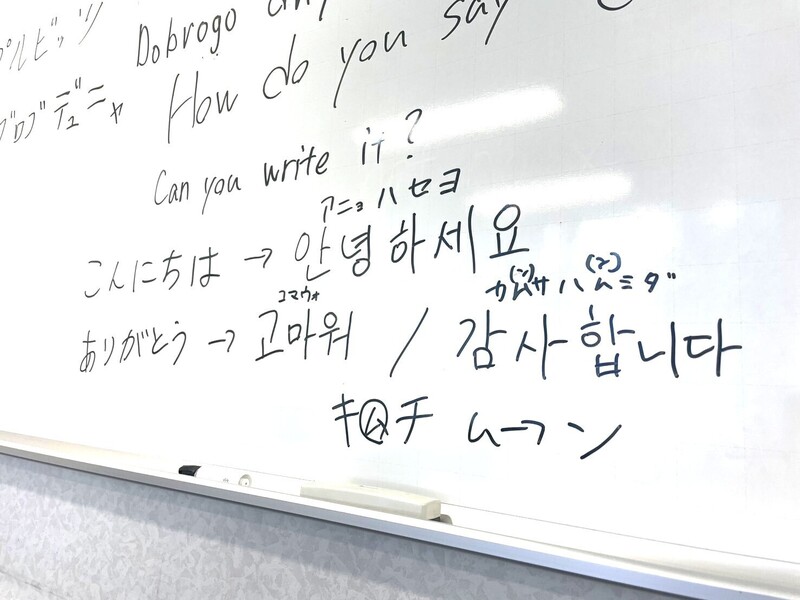 プルビッツ Dobrogo
ブロブデュニャ How do you say
Can you write it?
アニョハセヨ
こんにちは → 안녕하세요
コマウォ カムサハムミダ
(ン) (ン)
ありがとう → 고마워 / 감사합니다
キムチ ム→ン